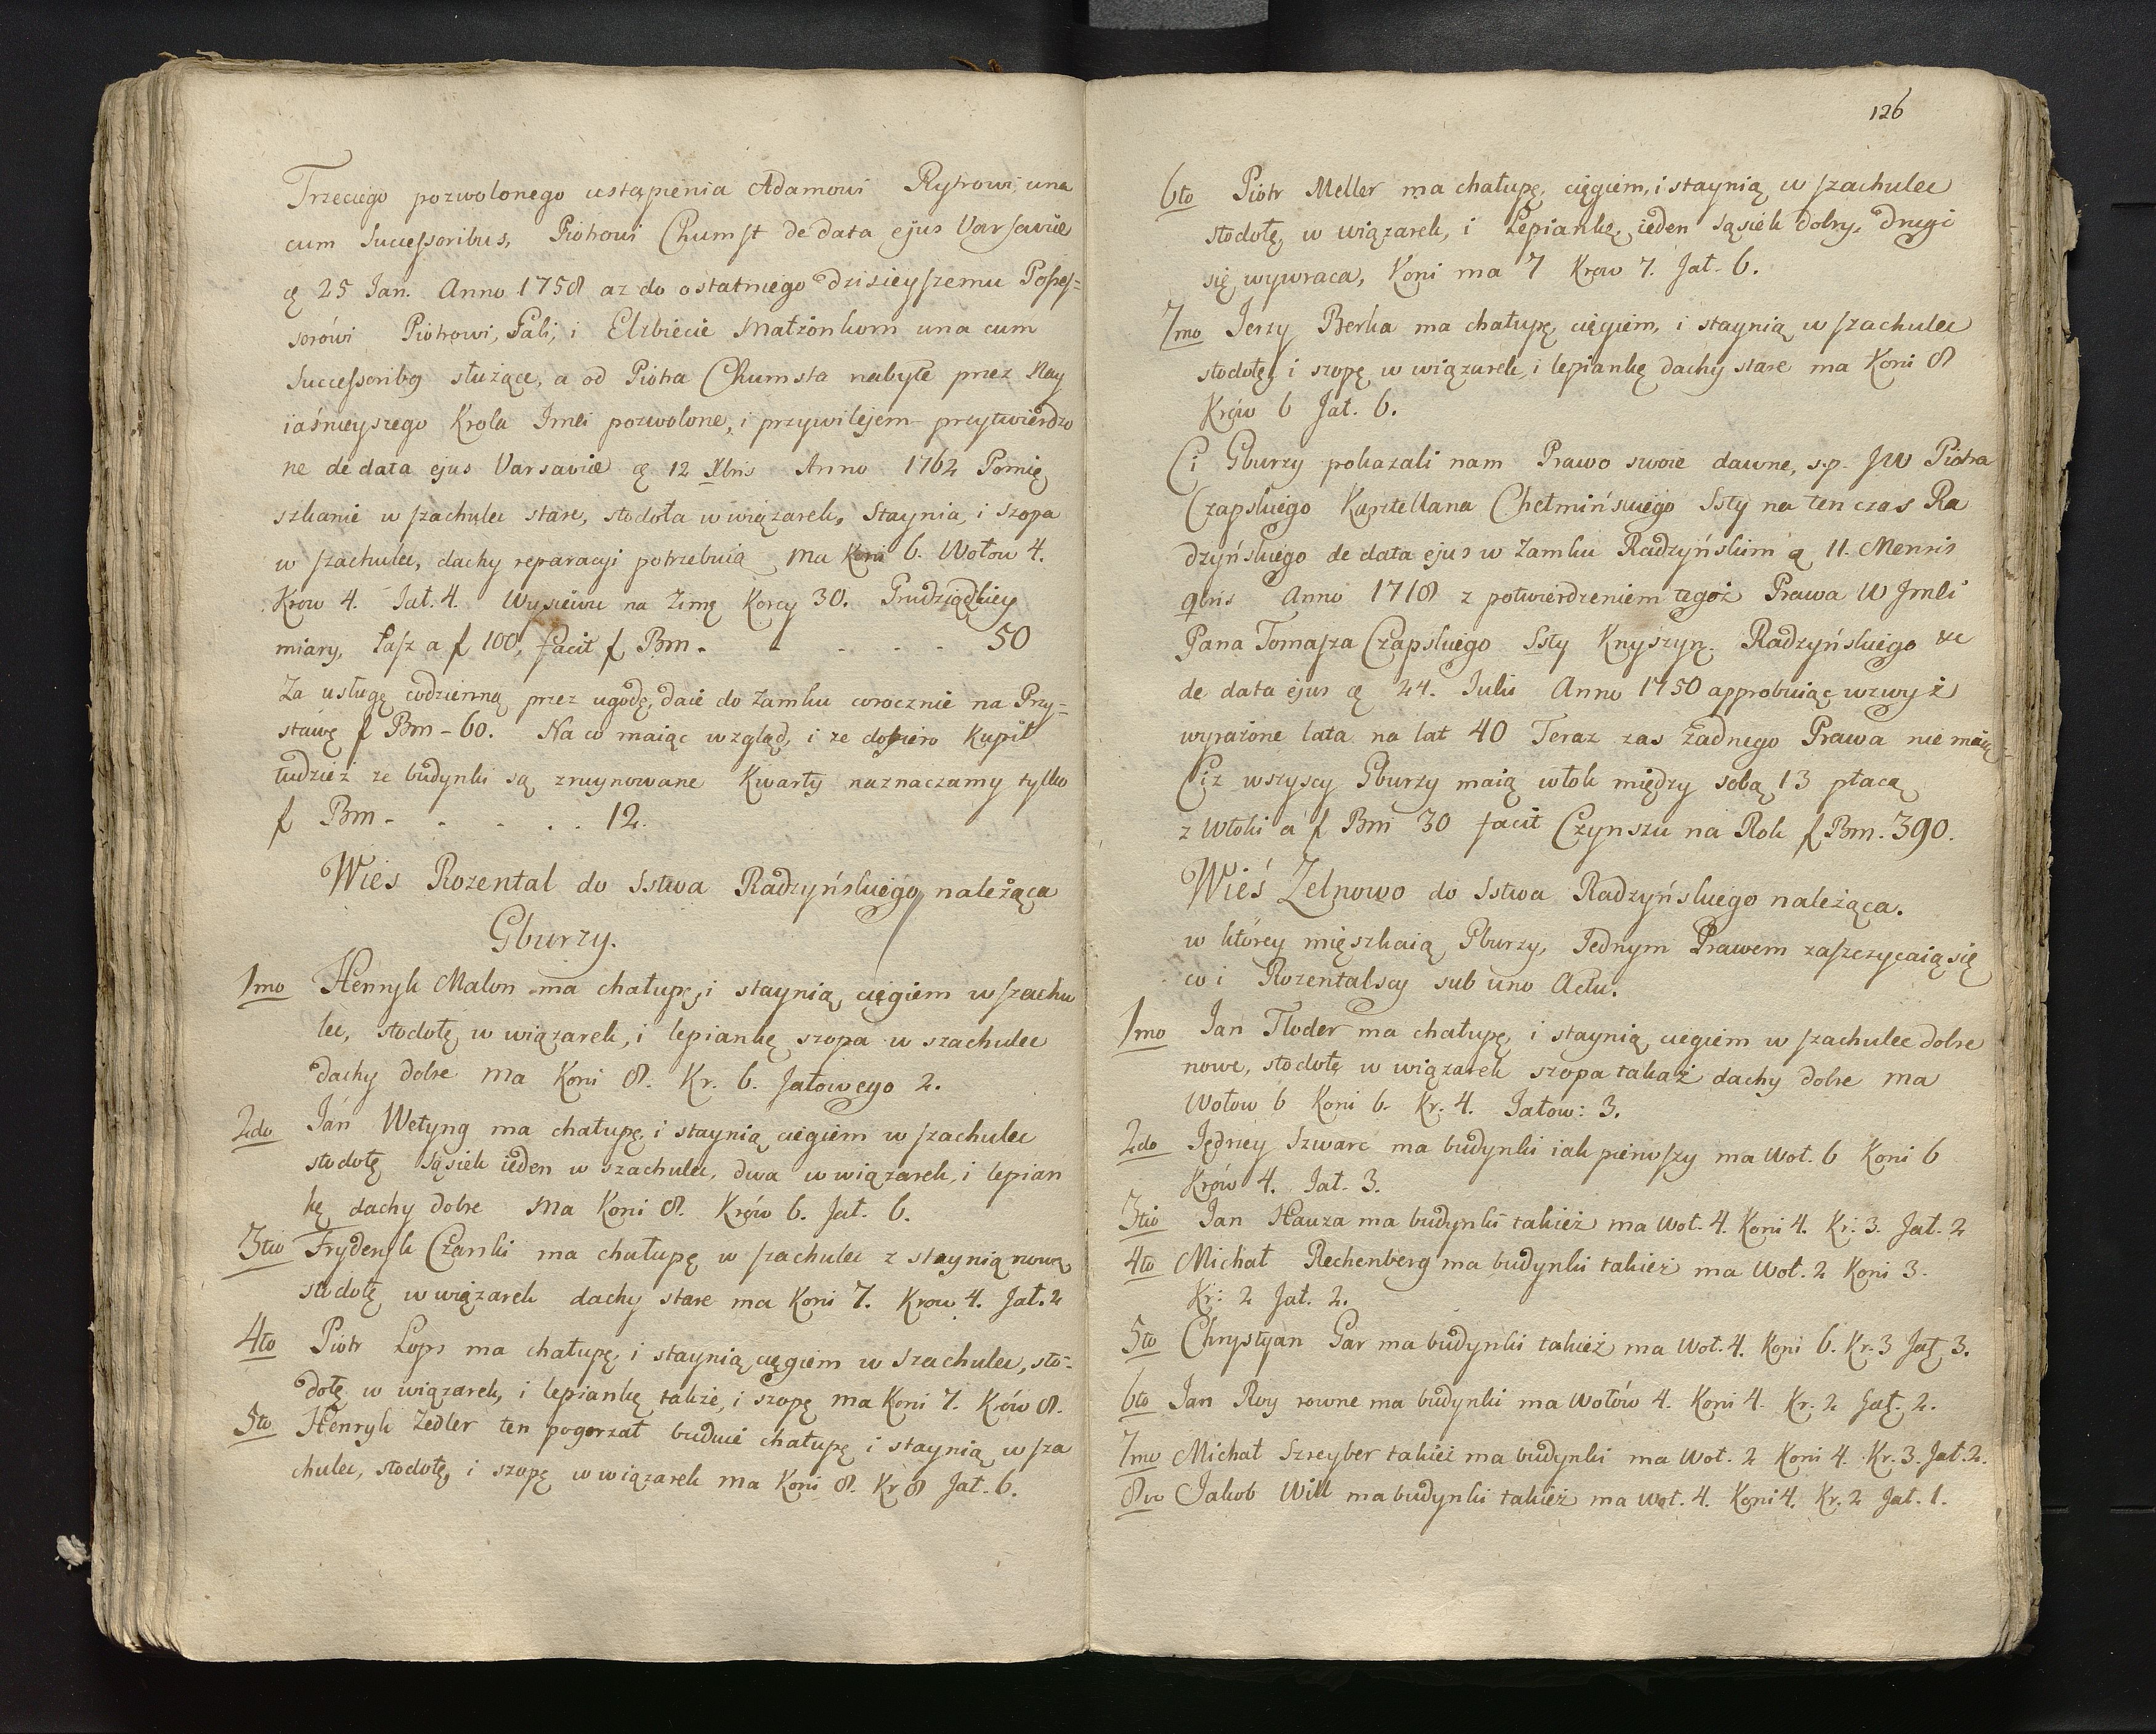 Trzeciego pozwolonego ustąpienia Adamowi Rytrowi, una
cum Successoribus, Piotrowi Chumst de data ejus Varsaviæ
25 Jan. Anno 1758 az do ostatniego dzisieyszemu Posses=
sorówi Piotrowi, Fali, i Elzbiecie Małżonkom una cum
Successoribq służące, a od Piotra Chumsta nabyte przez Nay
iaśnieyszego Krola Jmci pozwolone, i przywilejem przytwierdzo
ne de data ejus Varsaviæ 12 Xbris Anno 1762 Pomię
szkanie w szachulec stare, stodoła w wiązarek, Staynia, i szopa
w szachulec, dachy reparacyi potrzebuią ma Koni 6. Wołow 4.
Krow 4. Jał. 4. Wysiewu na Zimę Korcy 30. Grudziądzkiey
miary, Łaszt a f 100, facit f Bm. - - - - 50
Za usługę codzienną przez ugodę, daie do Zamku corocznie na Przy=
stawę f Bm - 60. Na co maiąc wzgląd, i ze dopiero Kupił
tudzież ze budynki są zruynowane Kwarty naznaczamy tylko
f Bm - - - . . 12.
Wies Rozental do Sstwa Radzyńskiego należąca
Gburzy.
1mo Henryk Malon ma chałupę, i staynią cięgiem w szachu
lec, stodołę w wiązarek, i lepiankę szopa w szachulec
dachy dobre ma Koni 8. Kr. 6. Jałowego 2.
2do Ján Wetyng ma chałupę, i staynią cięgiem w szachulec
stodołę sąsiek ieden w szachulec, dwa w wiązarek, i lepian
kę dachy dobre Ma Koni 8. Krów 6. Jał. 6.
3tio Fryderyk Czarski ma chałupę w szachulec z staynią nową
stodołę w wiązarek dachy stare ma Koni 7. Krow 4. Jał. 2
4to Piotr Lops ma chałupę, i staynią cięgiem w szachulec, sto=
dołę w wiązarek, i lepiankę także, i szopę ma Koni 7. Krów 8.
5to Henryk Zedler ten pogorzał buduie chałupę i staynią w sza
chulec, stodołę, i szopę w wiązarek ma Koni 8. Kr 8 Jał. 6.
126
6to Piotr Meller ma chałupę, cięgiem, i staynią w szachulec
stodołę, w wiązarek, i Lepiankę, ieden sąsiek dobry, drugi
się wywraca, Koni ma 7 Krow 7. Jał. 6.
7mo Jerzy Berka ma chałupę, cięgiem, i staynią w szachulec
stodołę, i szopę w wiązarek, i lepiankę dachy stare ma Koni 8
Krów 6 Jał. 6.
Ci Gburzy pokazali nam Prawo swoie dawne, s.p. JW Piotra
Czapskiego Kasztellana Chełmińskiego Ssty na ten czas Ra
dzyńskiego de data ejus w Zamku Radzyńskim 11. Mensis
9bris Anno 1718 z potwierdzeniem tegoż Prawa W Jmci
Pana Tomasza Czapskiego Ssty Knyszyn. Radzyńskiego &c
de data ejus 24. Julii Anno 1750 approbuiąc wzwyż
wyrażone lata na lat 40 Teraz zas żadnego Prawa nie maią
Ciz wszyscy Gburzy maią włok między sobą 13 płacą
z Włoki a f Bm 30 facit Czynszu na Rok f Bm. 390.
Wieś Zelnowo do Sstwa Radzyńskiego należąca.
w którey mięszkaią Gburzy, Jednym Prawem zaszczycaią się
co i Rozentalscy sub uno Actu.
1mo Jan Floder ma chałupę, i staynią ciegiem w szachulec dobre
nowe, stodołę w wiązarek szopa takaż dachy dobre ma
Wołow 6 Koni 6. Kr. 4. Jałow: 3.
2do Jędrzey Szwarc ma budynki iak pierwszy ma Woł. 6 Koni 6
Krów 4. Jał. 3.
3tio Jan Hauza ma budynki takież ma Woł. 4. Koni 4. Kr: 3. Jał. 2
4to Michał Rechenberg ma budynki takież ma Woł. 2 Koni 3.
Kr: 2 Jał. 2.
5to Chrystyan Gar ma budynki takież ma Woł. 4. Koni 6. Kr. 3 Jał 3.
6to Jan Roy rowne ma budynki ma Wołów 4. Koni 4. Kr. 2 Jał. 2.
7mo Michał Szreyber takież ma budynki ma Woł. 2 Koni 4. Kr. 3. Jał. 2.
8vo Jakob Will ma budynki takież ma Woł. 4. Koni 4. Kr. 2 Jał. 1.